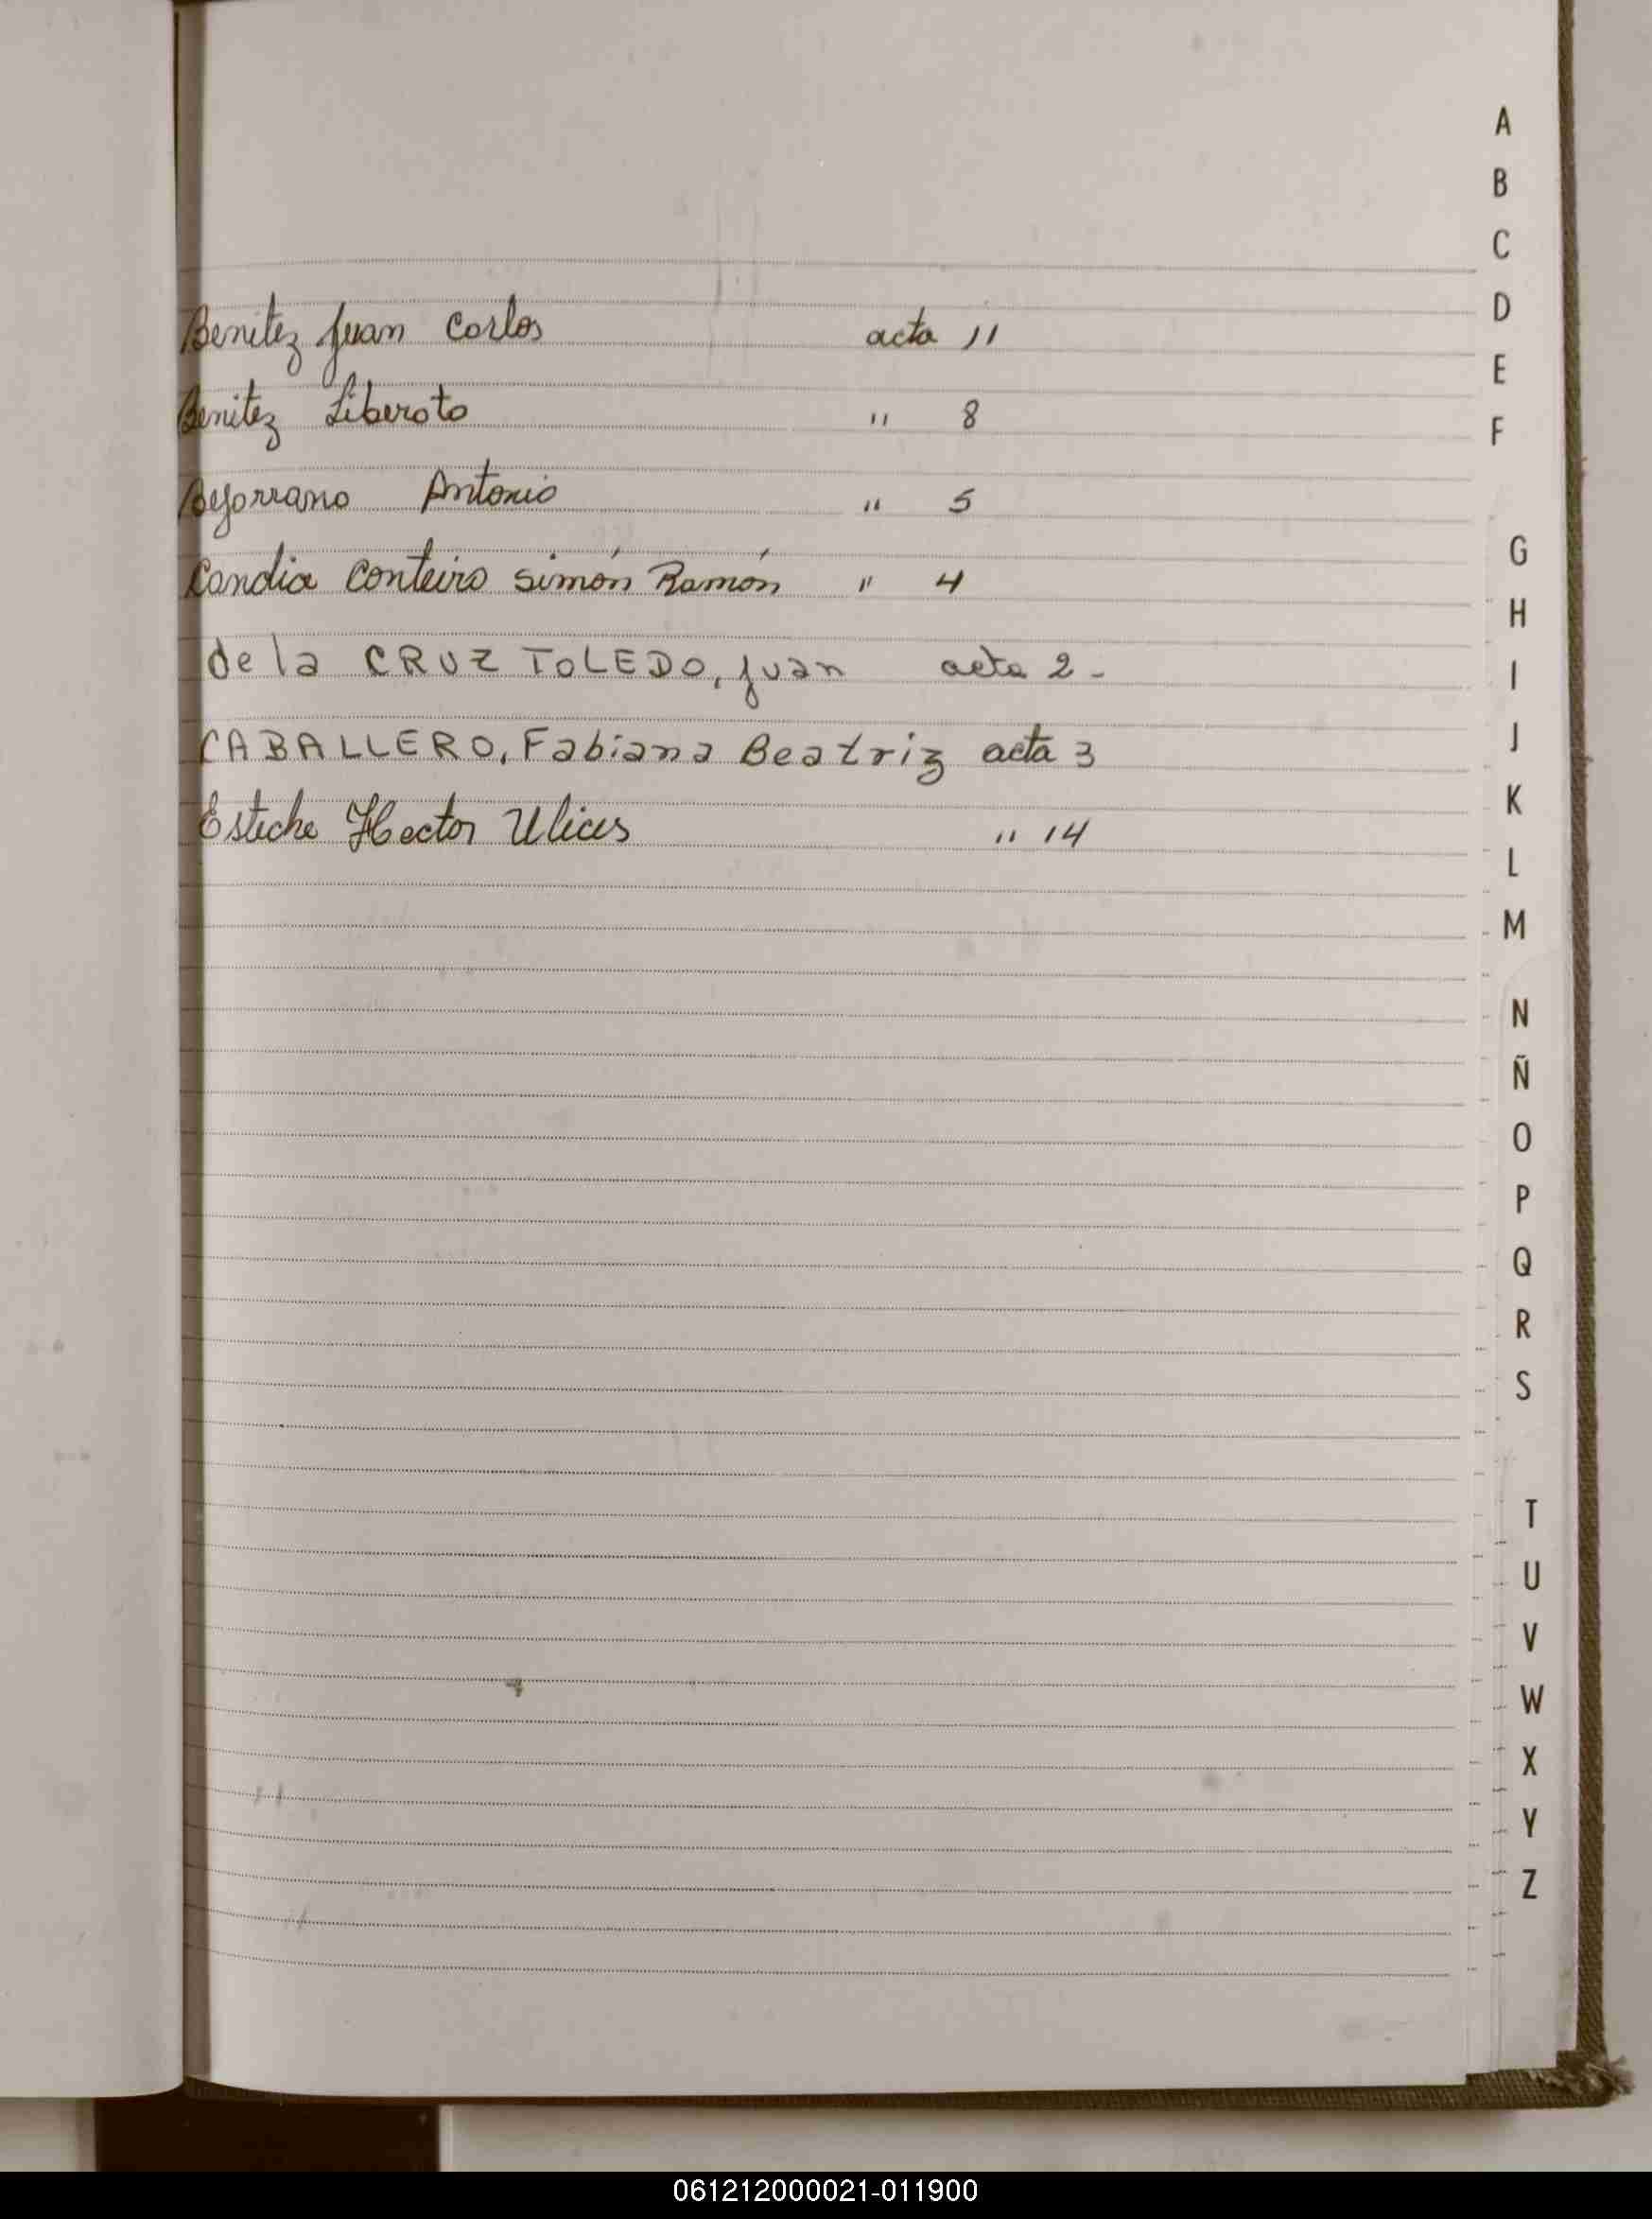 Benitez Juan Carlos acta 11
Benitez Liberato " 8
Bejarrano Antonio " 5
Candia Conteiro Simón Ramón " 4
de la CRUZ TOLEDO, Juan acta 2-
CABALLERO, Fabiana Beatriz acta 3
Esteche Hector Ulices " 14
A
B
C
D
E
F
G
H
I
J
K
L
M
N
Ñ
O
P
Q
R
S
T
U
V
W
X
Y
Z
061212000021-011900